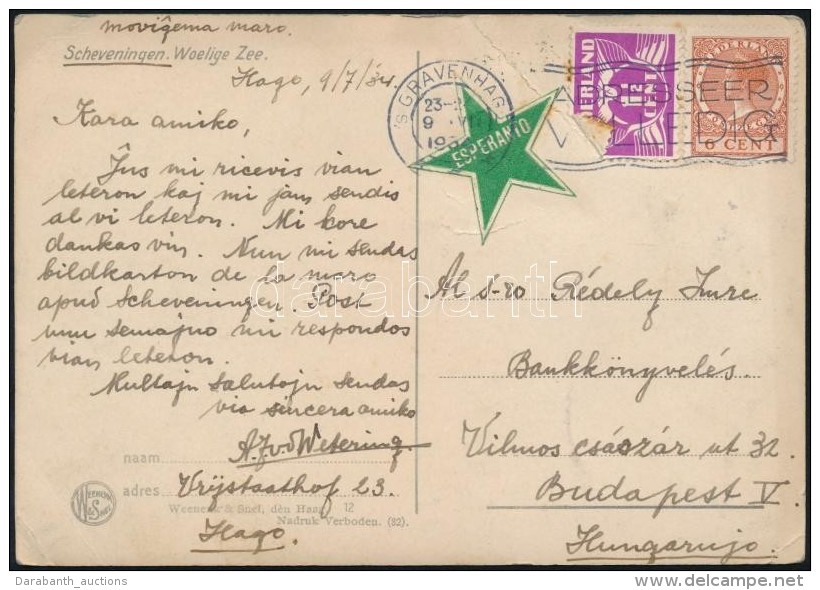 moviĝema maro.
Scheveningen. Woelige Zee.
Hago, 9/7/34.
Kara amiko,
Ĵus mi ricevis vian
leteron kaj mi jam sendis
al vi leteron. Mi kore
dankas vin. Nun mi sendas
bildkarton de la maro
apud Scheveningen. Post
unu semajno mi respondos
vian leteron.
Multajn salutojn sendas
via sincera amiko
naam A.J.v.d Wetering.
adres Vrijstaathof 23.
Weenenk & Snel, den Haag 12
Nadruk Verboden. (32)
Hago.
WEENENK & SNEL
'S GRAVENHAGE
23-
9 VII
193
ADRESSEER
VOLLEDIG
NEDERLAND
6 CENT
ESPERANTO
Al s-ro Rédely Imre
Bankkönyvelés.
Vilmos császár ut 32.
Budapest V.
Hungarujo.
darabanth
Darabanth_auctions